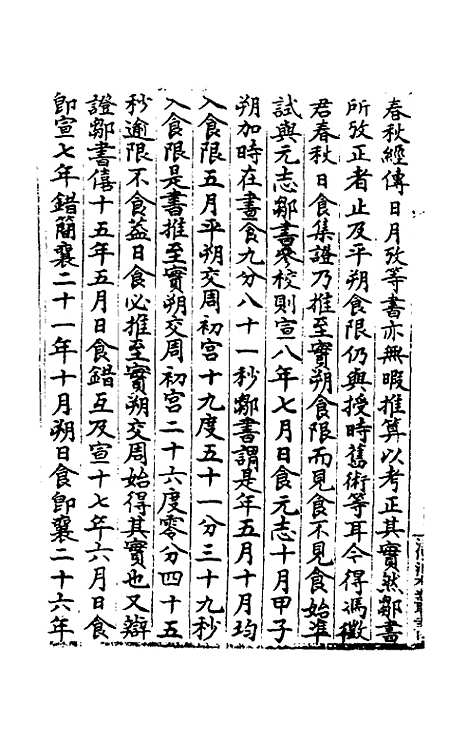 春秋經傳日月攷等書亦無暇推算以考正其實然鄒書
所攷正者止及平朔食限仍與授時舊術等耳今得馮徵
君春秋日食集證乃推至實朔食限而見食不見食始準
試與元志鄒書參校則宣八年七月日食元志十月甲子
朔加時在晝食九分八十一秒鄒書謂是年五月十月均
入食限五月平朔交周初宮十九度五十一分三十九秒
入食限是書推至實朔交周初宮二十六度零分四十五
秒逾限不食蓋日食必推至實朔交周始得其實也又辯
證鄒書僖十五年五月日食錯互及宣十七年六月日食
卽宣七年錯簡襄二十一年十月朔日食卽襄二十六年